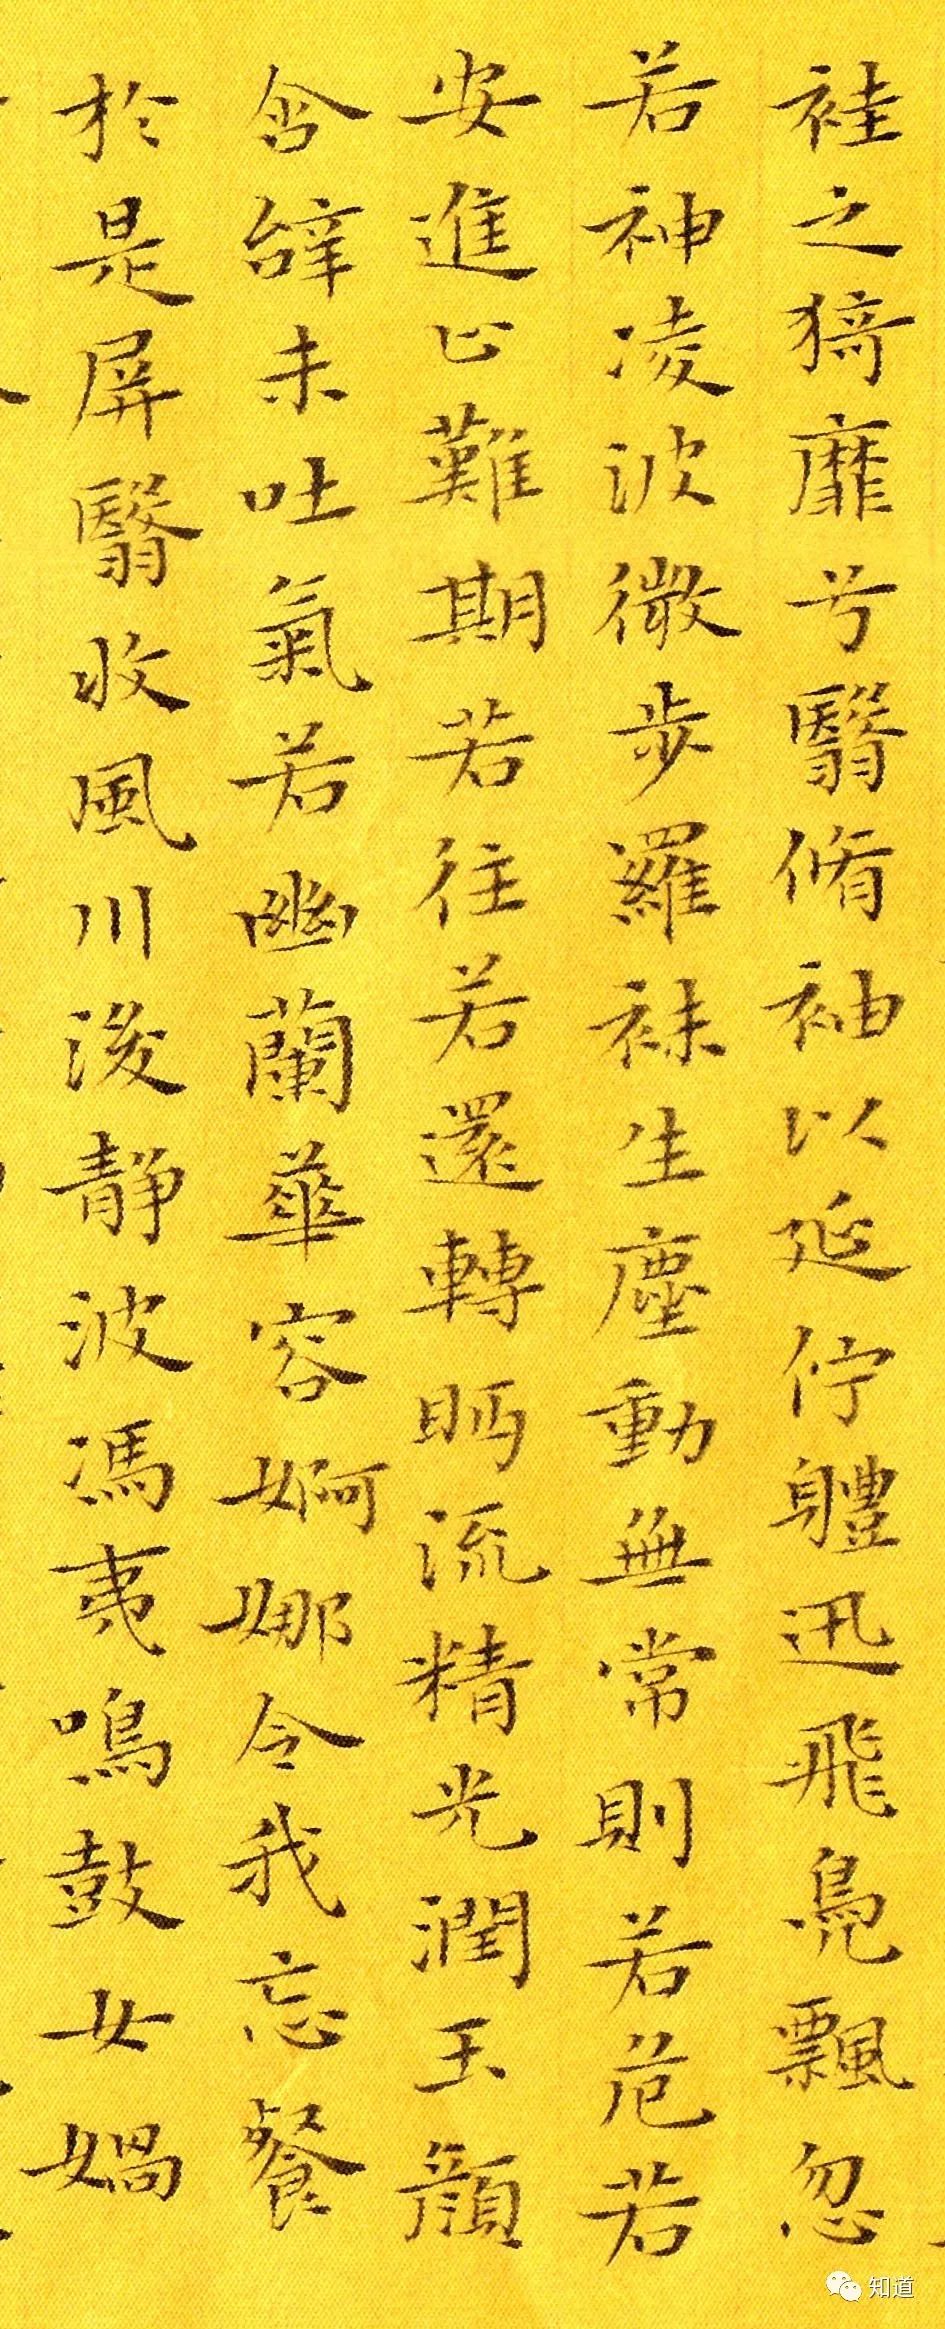 袿之猗靡兮翳脩袖以延佇體迅飛鳧飄忽
若神凌波微步羅袜生塵動無常則若危若
安進止難期若往若還轉眄流精光潤玉顏
含辝未吐氣若幽蘭華容婀娜令我忘餐
於是屏翳收風川後静波馮夷鳴鼓女媧
知道